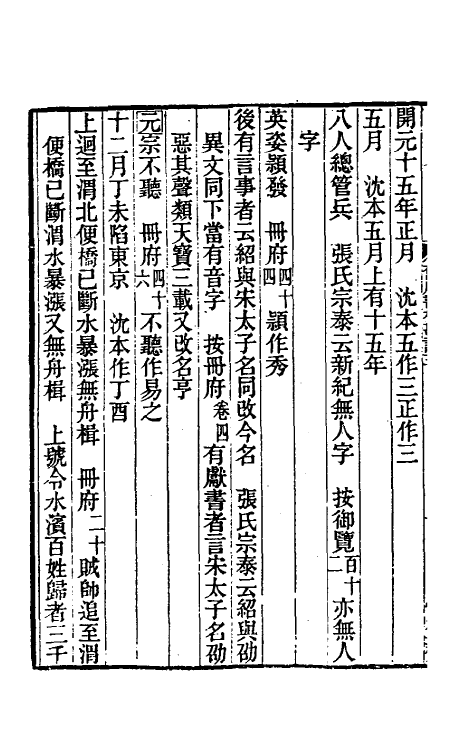 開元十五年正月　沈本五作三正作三
五月　沈本五月上有十五年
八人總管兵　張氏宗泰云新紀無人字　按御覽百十二亦無人
字
英姿穎發　冊府四十四穎作秀
後有言事者云紹與宋太子名同改今名　張氏宗泰云紹與劭
異文同下當有音字　按冊府卷四有獻書者言宋太子名劭
惡其聲類天寶三載又改名亨
元宗不聽　冊府四十六不聽作易之
十二月丁未陷東京　沈本作丁酉
上迴至渭北便橋已斷水暴漲無舟楫　冊府二十賊師追至渭
便橋已斷渭水暴漲又無舟楫　上號令水濱百姓歸者三千